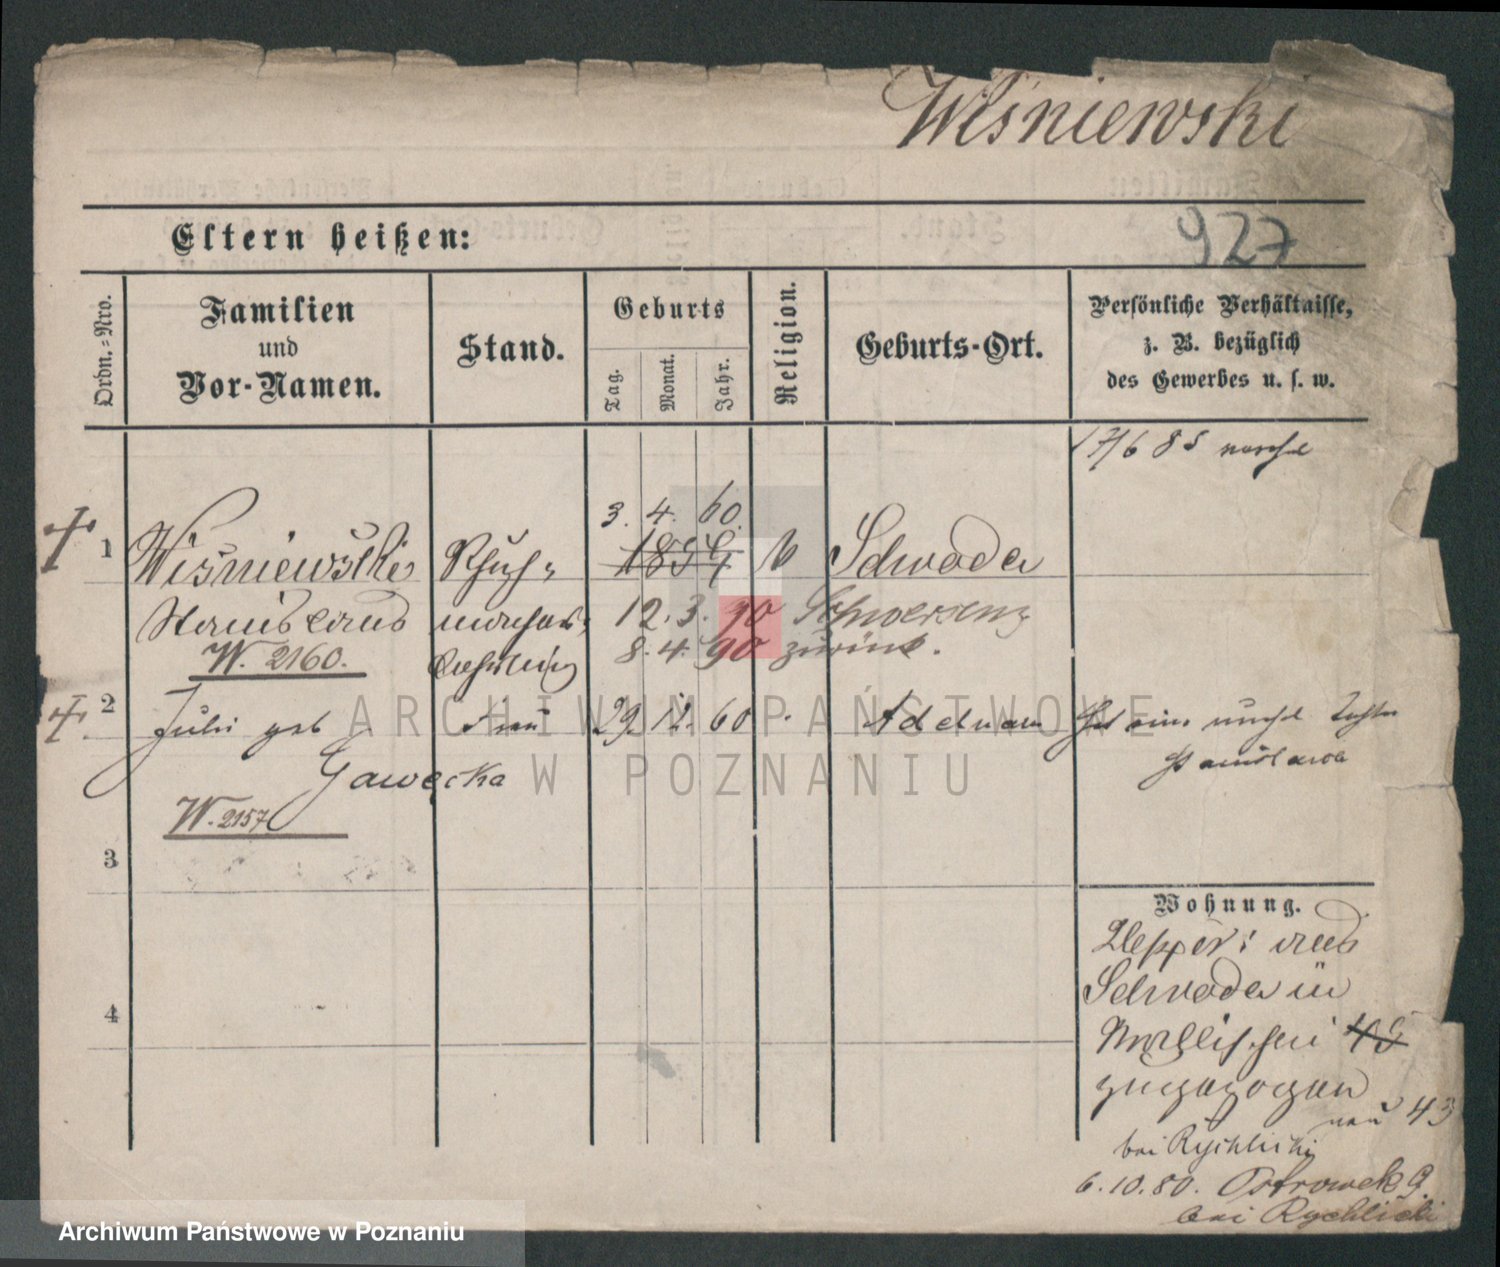 Wiśniewski
927
Eltern heißen:
Ordn.=Nro.
Familien
und
Vor-Namen.
Stand.
Geburts
Tag.
Monat.
Jahr.
Religion.
Geburts-Ort.
Persönliche Verhältnisse,
z. B. bezüglich
des Gewerbes u. s. w.
17/6 85
3. 4. 60.
1 Wiśniewski Schuh= 1859 Schroda
Stanislaus macher=
12. 3. 90 Schwersenz
W. 2160. Lehrling 8. 4. 90 zurück.
2 Julie geb Frau 29. 12. 60
Stanislawa
Gawęcka
W. 2157
3
Wohnung.
Schroda in
4
45
zugezogen
neu 43
bei Rychlicki
6. 10. 80. Ostrowek 9.
bei Rychlicki
ARCHIWUM PAŃSTWOWE
W POZNANIU
Archiwum Państwowe w Poznaniu